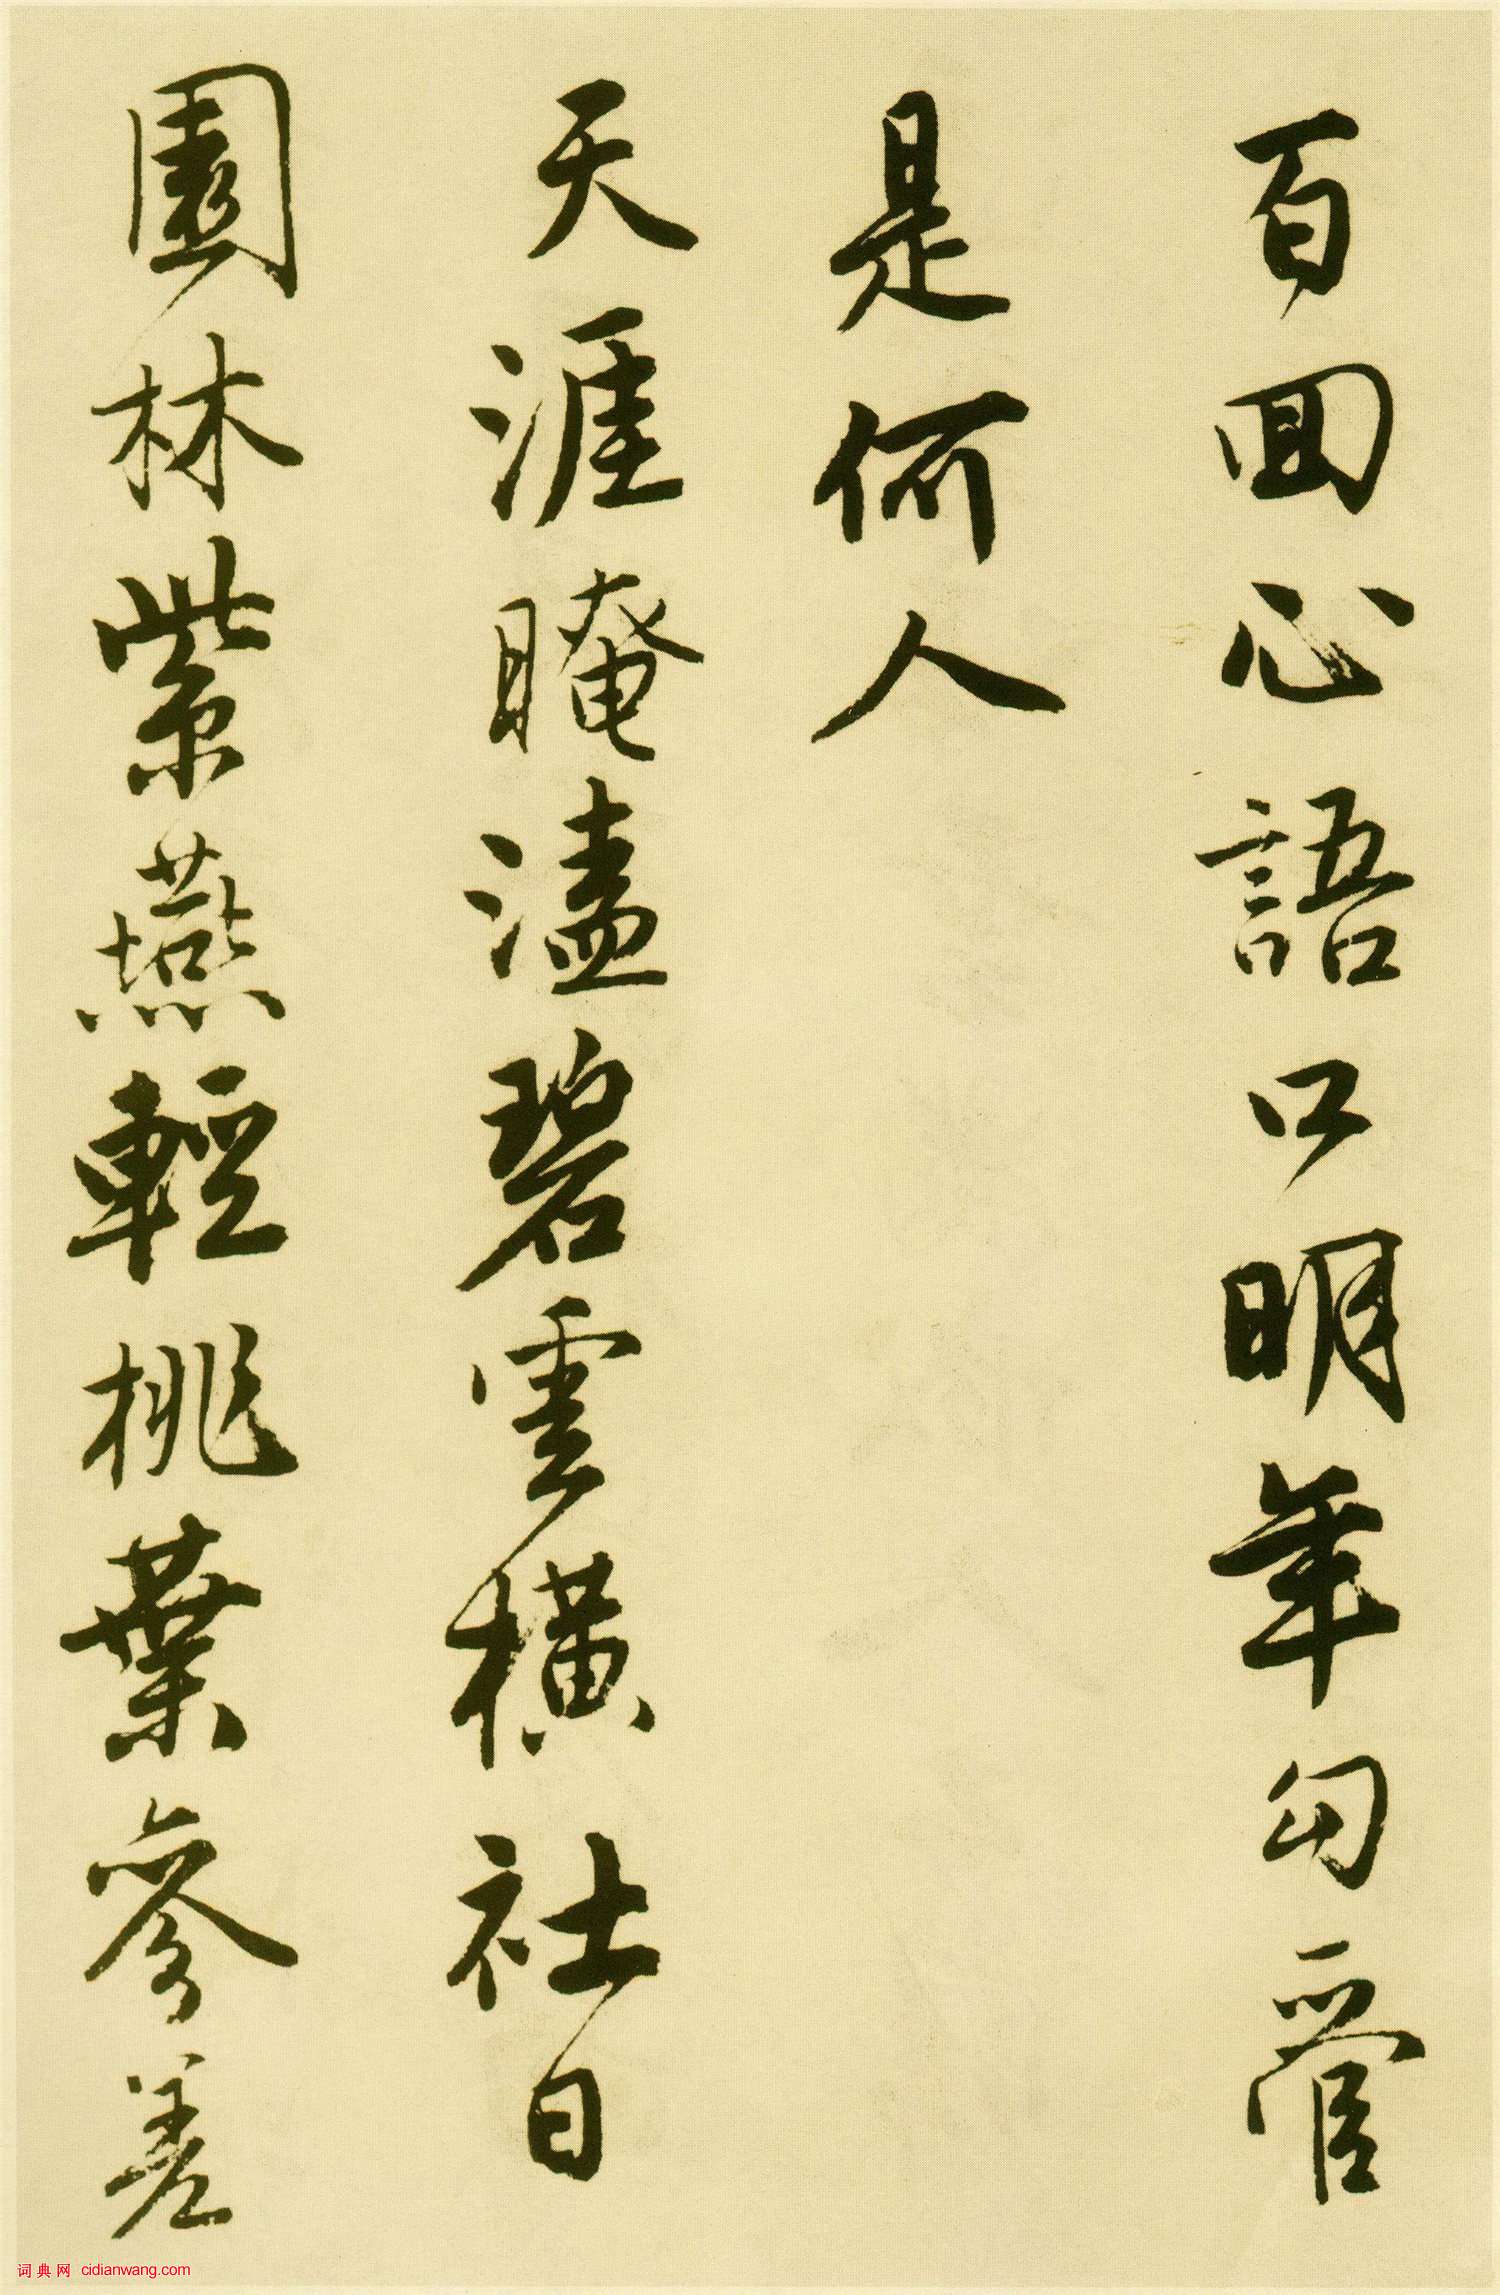 百回心語口明年勾管
是何人
天涯晻溘碧雲橫社日
園林紫燕輕桃葉參差
词典网 cidianwang.com